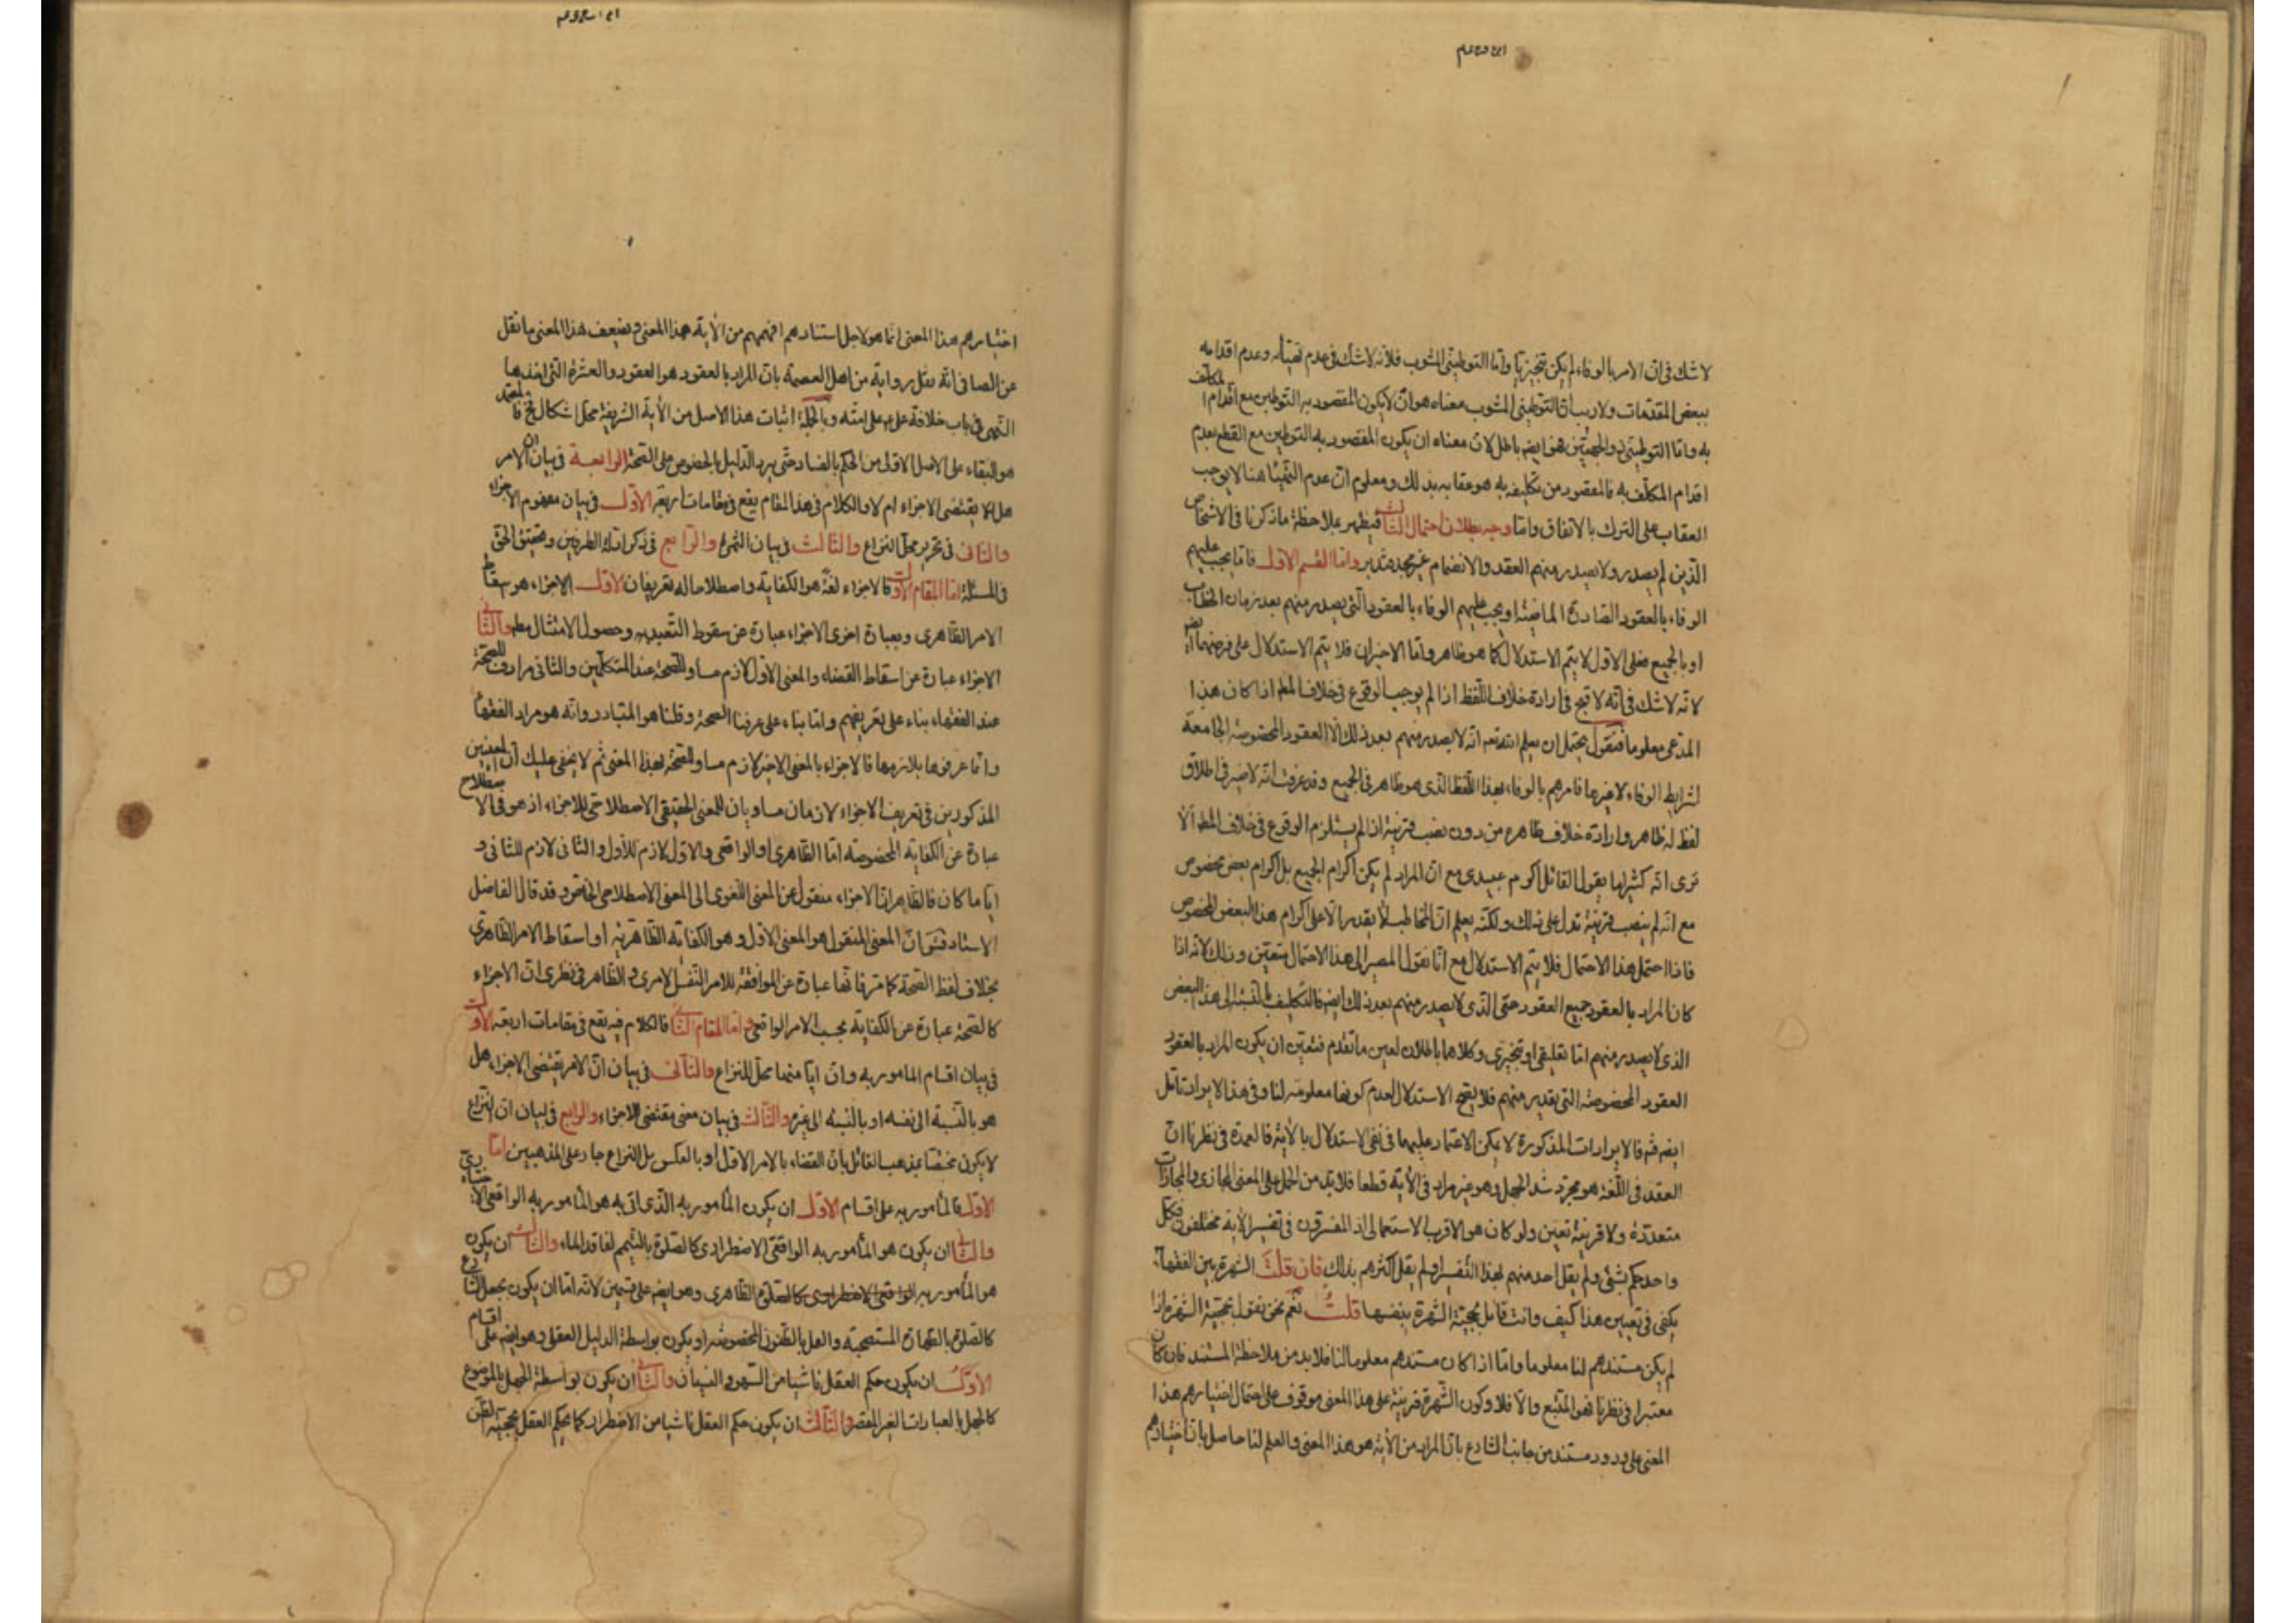 لا شك فى ان الامر بالوفاء لم يكن تنجيزيا واما التوطينى المشوب فلانه لا شك فى عدم تهيأه وعدم اقدامه
ببعض المقدمات ولا ريب ان التوطينى المشوب معناه هو ان لا يكون المقصود به التوطين مع اقدام المكلف
به واما التوطينى هو ايضا باطل لان معناه ان يكون المقصود به التوطين مع القطع بعدم
اقدام المكلف به فالمقصود من تكليفه به هو عقابه بذلك ومعلوم ان عدم التهيأ هنا لا يوجب
العقاب على الترك بالاتفاق واما وجه بطلان احتمال الثالث فيظهر بملاحظة ما ذكرنا فى الاشخاص
الذين لم يصدر ولا يصدر منهم العقد والانضمام غير مجد فتدبر واما القسم الاول فاما يجب عليهم
الوفاء بالعقود الصادرة الماضية او يجب عليهم الوفاء بالعقود التى يصدر منهم بعد زمان الخطاب
او بالجميع فعلى الاول لا يتم الاستدلال كما هو ظاهر واما الاخيران فلا يتم الاستدلال على فرضهما ايضا
لانه لا شك فى انه لا قبح فى ارادة خلاف اللفظ اذا لم يوجب الوقوع فى خلاف المط اذا كان هذا
المدعى معلوما فنقول يحتمل ان يعلم الله تعه انه لا يصدر منهم بعد ذلك الا العقود المخصوصة الجامعة
لشرايط الوفاء لا غيرها فامرهم بالوفاء بهذا اللفظ الذى هو ظاهر فى الجميع وقد عرفت انه لا ضير فى اطلاق
لفظ له ظاهر وارادة خلاف ظاهره من دون نصب قرينة اذا لم يستلزم الوقوع فى خلاف المط الا
ترى انه كثيرا ما يقول القائل اكرم عبيدى مع ان المراد لم يكن اكرام الجميع بل اكرام بعض مخصوص
مع انه لم ينصب قرينة تدل على ذلك ولكنه يعلم ان المخاطب لا يقدر الا على اكرام هذا البعض المخصوص
فاذا احتمل هذا الاحتمال فلا يتم الاستدلال مع انا نقول المصير الى هذا الاحتمال متعين وذلك لانه اذا
كان المراد بالعقود جميع العقود حتى الذى لا يصدر منهم بعد ذلك ايضا فالتكليف بالنسبة الى هذا البعض
الذى لا يصدر منهم اما تعليقى او تنجيزى وكلاهما باطلان لعين ما تقدم فتعين ان يكون المراد بالعقود
العقود المخصوصة التى يصدر منهم فلا يصح الاستدلال لعدم كونها معلومة لنا وفى هذا الايراد تامل
ايضا فالايرادات المذكورة لا يمكن الاعتماد عليها فى نفى الاستدلال بالاية فالعمدة فى نظرنا ان
العقد فى اللغة هو مجرد شد الحبل وهو غير مراد فى الاية قطعا فلا بد من الحمل على المعنى المجازى والمجازات
متعددة ولا قرينة تعين ولو كان هو الاقرب الاستعمالى اذ المفسرون فى تفسير الاية مختلفون فكل
واحد حكم بشئ ولم يقل احد منهم بهذا التفسير او لم يقل اكثرهم بذلك فان قلت الشهرة بين الفقهاء
يكفى فى تعيين هذا كيف وانت قائل بحجية الشهرة بنفسها قلت نعم نحن نقول بحجية الشهرة اذا
لم يكن مستندهم لنا معلوما واما اذا كان مستندهم معلوما لنا فلا بد من ملاحظة المستند فان كان
معتبرا فى نظرنا فهو المتبع والا فلا وكون الشهرة قرينة على هذا المعنى موقوف على احتمال اختيارهم هذا
المعنى على ورود مستند من جانب الشارع بان المراد من الاية هو هذا المعنى والعلم لنا حاصل بان اختيارهم
اختيارهم هذا المعنى انما هو لاجل استنادهم افهمهم من الاية هذا المعنى ويضعف هذا المعنى ما نقل
عن الصافى انه نقل رواية من اهل العصمة بان المراد بالعقود هو العقود العشرة التى اخذها
النبى فى باب خلافة على ع على امته وبالجملة اثبات هذا الاصل من الاية الشريفة محل اشكال فح فالمعتمد
هو البقاء على الاصل الاولى من الحكم بالفساد حتى يرد الدليل بالخصوص على الصحة الرابعة فى بيان ان الامر
هل يقتضى الاجزاء ام لا والكلام فى هذا المقام يقع فى مقامات اربعة الاول فى بيان مفهوم الاجزاء
والثانى فى تحرير محل النزاع والثالث فى بيان الثمرة والرابع فى ذكر ادلة الطرفين وتحقيق الحق
فى المسئلة اما المقام الاول فالاجزاء لغة هو الكفاية واصطلاحا له تعريفان الاول الاجزاء هو سقاط
الامر الظاهرى وبعبارة اخرى الاجزاء عبارة عن سقوط التعبد به وحصول الامتثال مط والثانى
الاجزاء عبارة عن اسقاط القضاء والمعنى الاول لازم مساو للصحة عند المتكلمين والثانى مرادف للصحة
عند الفقهاء بناء على تعريفهم واما بناء على عرفنا الصحة وقلنا هو المتبادر وانه هو مراد الفقهاء
وانا عرفوها بلازمها فالاجزاء بالمعنى الاخير لازم مساو للصحة بهذا المعنى ثم لا يخفى عليك ان المعنيين
المذكورين فى تعريف الاجزاء لازمان مساويان للمعنى الحقيقى الاصطلاحى للاجزاء اذ هو فى الاصطلاح
عبارة عن الكفاية المخصوصة اما الظاهرى او الواقعى والاول لازم للاول والثانى لازم للثانى و
ايا ما كان فالظاهر ان الاجزاء منقول عن المعنى اللغوى الى المعنى الاصطلاحى الخاص وقد قال الفاضل
الاستاد ان المعنى المنقول هو المعنى الاول وهو الكفاية الظاهرية او اسقاط الامر الظاهرى
بخلاف لفظ الصحة كما مر فانها عبارة عن الموافقة للامر النفس الامرى والظاهر فى نظرى ان الاجزاء
كالصحة عبارة عن الكفاية بحسب الامر الواقعى واما المقام الثانى فالكلام فيه يقع فى مقامات اربعة الاول
فى بيان اقسام المامور به وان ايا منها محل للنزاع والثانى فى بيان ان الامر يقتضى الاجزاء هل
هو بالنسبة الى نفسه او بالنسبة الى غيره والثالث فى بيان معنى يقتضى الاجزاء والرابع فى بيان ان النزاع
لا يكون مختصا بمذهب القائل بان القضاء بالامر الاول او بالعكس بل النزاع جار على المذهبين اما
الاول فالمأمور به على اقسام الاول ان يكون المأمور به الذى اتى به هو المأمور به الواقعى الاختيارى
والثانى ان يكون هو المأمور به الواقعى الاضطرارى كالصلوة بالتيمم لفاقد الماء والثالث ان يكون
هو المأمور به الظاهرى وهو ايضا على قسمين لانه اما ان يكون بجعل الشارع
كالصلوة بالطهارة المستصحبة والعمل بالظنون المخصوصة او يكون بواسطة الدليل العقلى وهو ايضا على اقسام
الاول ان يكون حكم العقل ناشيا من السهو والنسيان والثانى ان يكون بواسطة الجهل بالموضوع
كالجهل بالعبارات الغير المقصر والثالث ان يكون حكم العقل ناشيا من الاضطرار كما يحكم العقل بحجية الظن